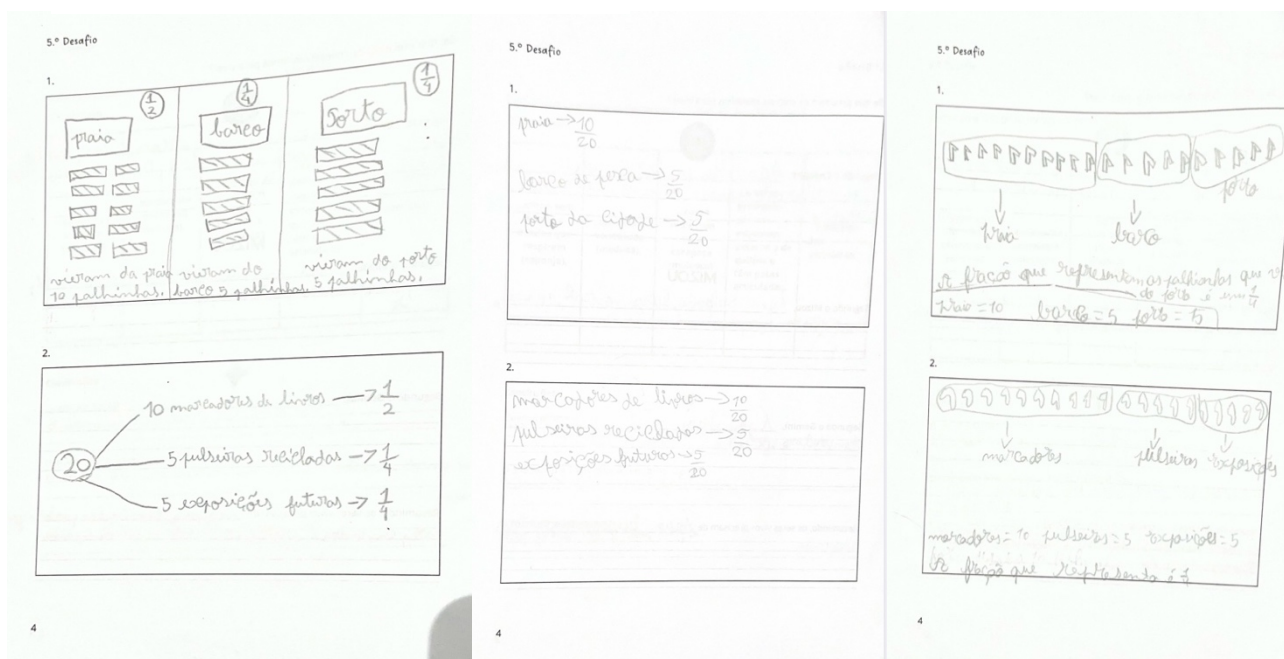 5.º Desafio
1.
1/2
1/4
1/4
praia
barco
Porto
vieram da praia
10 palhinhas.
vieram do
barco 5 palhinhas.
vieram do porto
5 palhinhas.
2.
20
10 marcadores de livros → 1/2
5 pulseiras recicladas → 1/4
5 exposições futuras → 1/4
4
5.º Desafio
1.
praia → 10/20
barco de pesca → 5/20
porto da cidade → 5/20
2.
marcadores de livros → 10/20
pulseiras reciclagos → 5/20
exposições futuras → 5/20
4
5.º Desafio
1.
porto
praia
barco
A fração que representam as palhinhas que
do porto é um 1/4
praia = 10 barco = 5 porto = 5
2.
marcadores pulseiras exposições
marcadores = 10 pulseiras = 5 exposições = 5
A fração que representa é
4